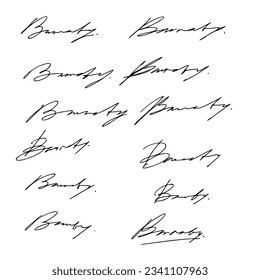 Barnaby. Barnaby.
Barnaby. Barnaby.
Barnaby Barnaby.
Barnaby Barnaby
Barnaby.
Barnaby.
shutterstock.com · 2341107963